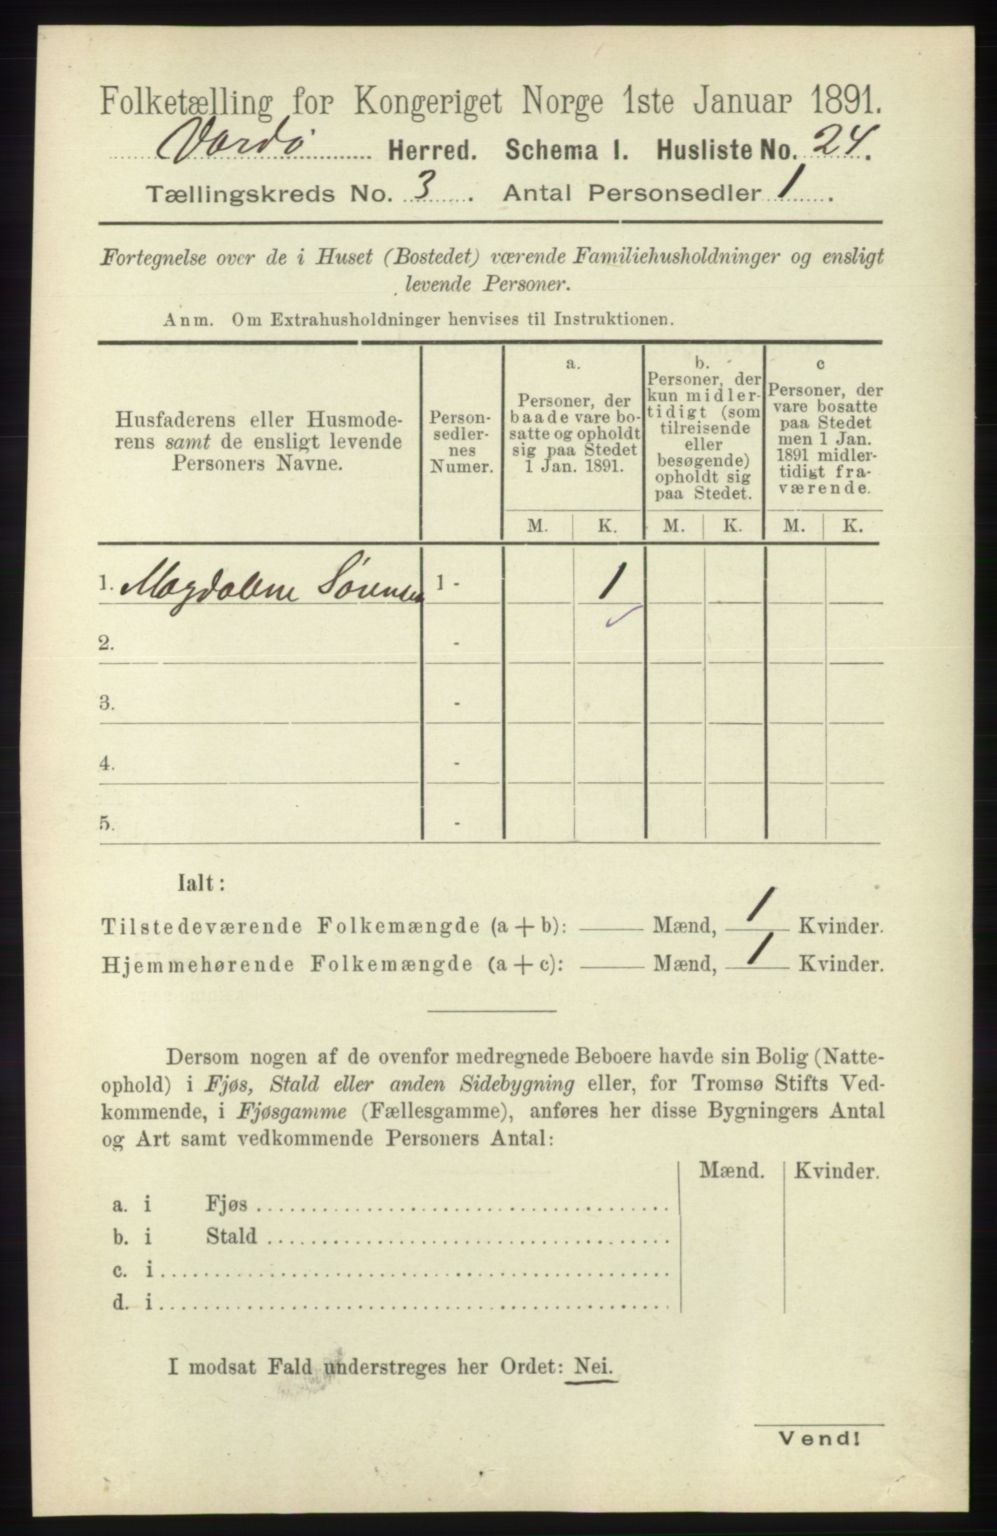 Folketælling for Kongeriget Norge 1ste Januar 1891.
Vardø Herred. Schema I. Husliste No. 24.
Tællingskreds No. 3. Antal Personsedler 1.
Fortegnelse over de i Huset (Bostedet) værende Familiehusholdninger og ensligt
levende Personer.
Anm. Om Extrahusholdninger henvises til Instruktionen.
Husfaderens eller Husmode-
rens samt de ensligt levende
Personers Navne.
Person-
sedler-
nes
Numer.
a.
Personer, der
baade vare bo-
satte og opholdt
sig paa Stedet
1 Jan. 1891.
b.
Personer, der
kun midler-
tidigt (som
tilreisende
eller
besøgende)
opholdt sig
paa Stedet.
c
Personer, der
vare bosatte
paa Stedet
men 1 Jan.
1891 midler-
tidigt fra-
værende.
M. K. M. K. M. K.
1. Magdalene Sørensen 1 - 1
2. -
3. -
4. -
5. -
Ialt:
Tilstedeværende Folkemængde (a + b): Mænd, 1 Kvinder.
Hjemmehørende Folkemængde (a + c): Mænd, 1 Kvinder.
Dersom nogen af de ovenfor medregnede Beboere havde sin Bolig (Natte-
ophold) i Fjøs, Stald eller anden Sidebygning eller, for Tromsø Stifts Ved-
kommende, i Fjøsgamme (Fællesgamme), anføres her disse Bygningers Antal
og Art samt vedkommende Personers Antal:
Mænd. Kvinder.
a. i Fjøs
b. i Stald
c. i
d. i
I modsat Fald understreges her Ordet: Nei.
Vend!